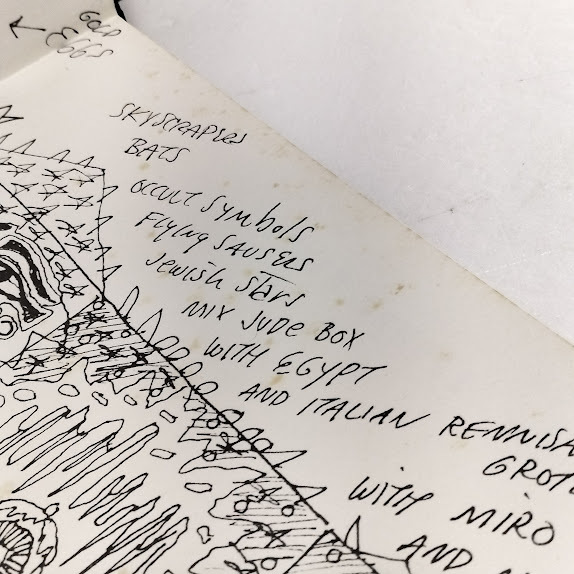 GOLD
EGGS
SKYSCRAPERS
BATS
OCCULT SYMBOLS
FLYING SAUSERS
JEWISH STARS
MIX JUDE BOX
WITH EGYPT
AND ITALIAN RENNISA
GROT
WITH MIRO
AND